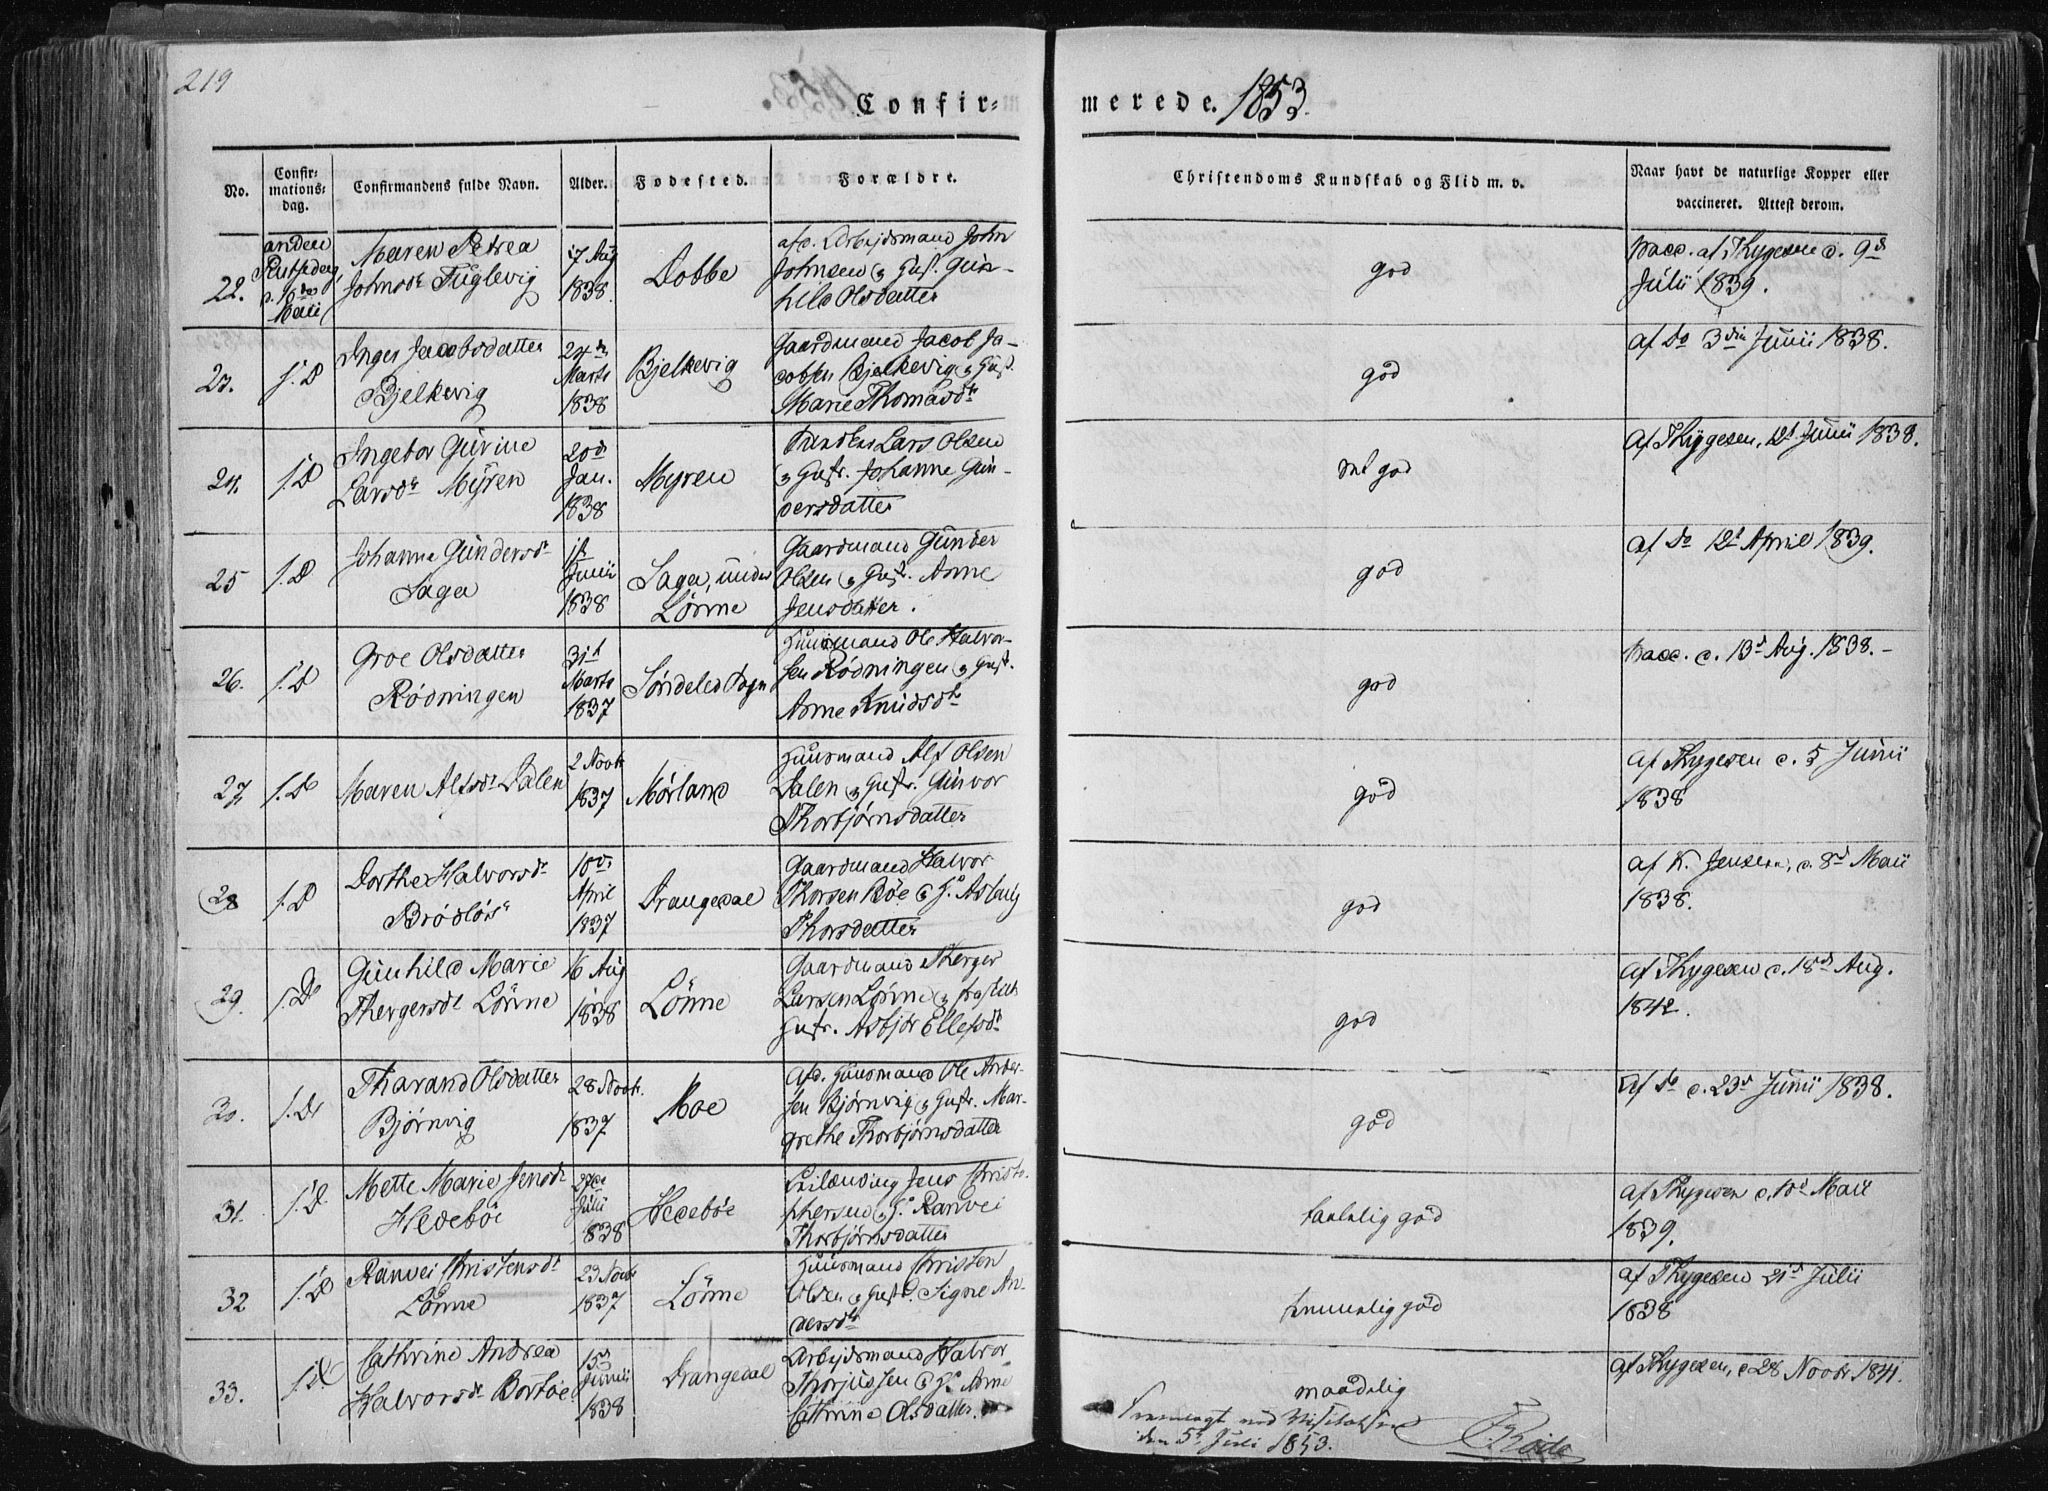 219
Confirmerede. 1853.
No.
Confirmations-dag.
Confirmandens fulde Navn.
Alder.
Fødested.
Forældre.
Christendoms Kundskab og Flid m. v.
Naar havt de naturlige Kopper eller
vaccineret. Attest derom.
22.
anden
Maii
Maren Petrea
Johnsdr Fuglevig
17 Aug
1838.
Dobbe
afd. Arbejdsmand John
Johnsen & Hust. Gun-
hild Olsdatter
god
vacc. af Thygesen d. 9d
Julii 1839.
23.
s. D
Inger Jacobsdatter
Bjelkevig
24de
Marts
1838
Bjelkevig
Gaardmand Jacob Ja-
cobsen Bjelkevig & Hust.
Marie Thomasdr
god
af Do 3die Junii 1838.
24.
s. D
Ingebor Gurine
Larsdr Myren
20d
Jan.
1838
Myren
Lars Olsen
& Hustr. Johanne Gun-
dersdatter
god
af Thygesen, 12t Junii 1838.
25
s. D
Johanne Gundersdr
Saga
1st
Junii
1838
Saga, under
Lønne
Gaardmand Gunder
Olsen & Hustr. Anne
Jensdatter.
god
af Do 12t April 1839.
26.
s. D
Groe Olsdatter
Rødningen
31t
Marts
1837
Søndeled Sogn
Huusmand Ole Halvor-
sen Rødningen & Hust.
Anne Knudsdr
god
vacc. d. 13d Aug. 1838.-
27,
s. D
Maren Alfsdr Dalen
2 Novbr
1837
Mørland
Huusmand Alf Olsen
Dalen & Hustr. Gunvor
Thorbjørnsdatter
god
af Thygesen d. 5 Junii
1838
28
s. D
Dorthe Halvorsdr
Brødløs
10d
April
1837
Drangedal
Gaardmand Halvor
Thorsen Bøe & H. Aslaug
Thorsdatter
god
af K. Jensen, d. 8d Maii
1838.
29.
s. D
Gunhild Marie
Thergersdr Lønne
16 Aug
1838
Lønne
Gaardmand Therger
Larsen Lønne & fraskilt
Hustr. Asbjør Ellefsdr
god
af Thygesen d. 18d Aug.
1842.
30.
s. D
Tharand Olsdatter
Bjørnvig
28 Novbr.
1837
Moe
Afd. Huusmand Ole Ander-
sen Bjørnvig & Hustr. Mar-
grethe Thorbjørnsdatter
god
af Do d. 23d Junii 1838.
31.
s. D
Mette Marie Jensdr
Hedebøe
Julii
1838
Hedebøe
Jens Christo-
phersen & H. Ranvei
Thorbjørnsdatter
taalelig god
af Thygesen d. 10d Maii
1839.
32
s. D
Ranvei Christensdr
Lønne
23 Novbr
1837
Lønne
Huusmand Christen
Olsen & Hustr. Signe An-
dersdr
temmelig god
af Thygesen 21d Julii
1838
33.
s. D
Cathrine Andrea
Halvorsdr Bostøe
15d
Junii
1838
Drangedal
Arbejdsmand Halvor
Thorjussen & H. Anne
Cathrine Olsdatter.
maadelig
af Thygesen, d 28 Novbr 1841.
Fremlagt ved Visitatsen
den 5t Juli 1853.